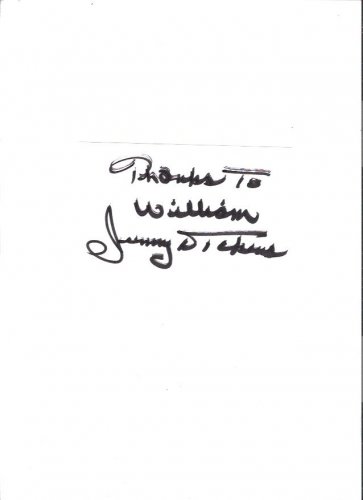 Thanks To
William
Jimmy Dickens